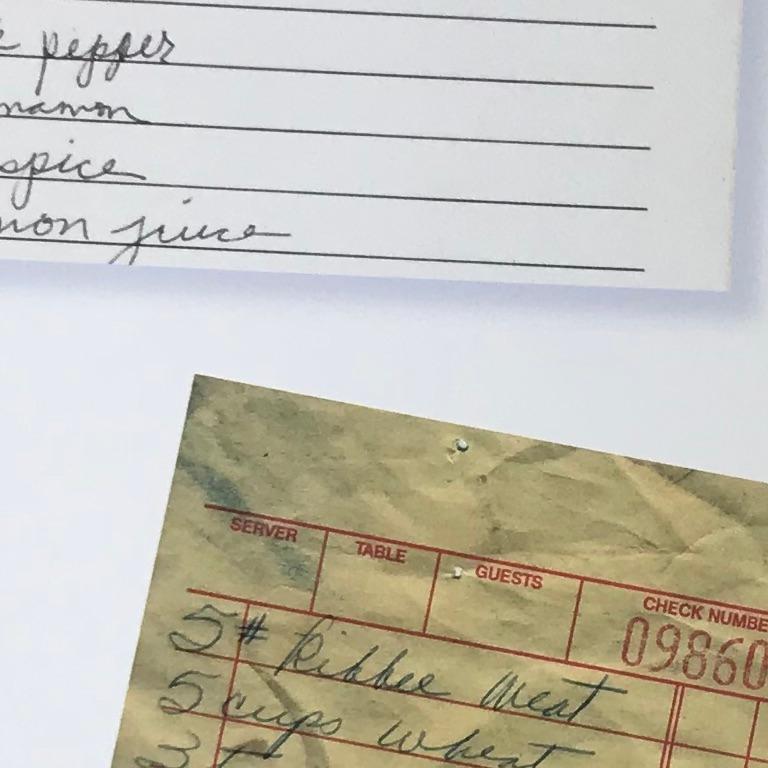 pepper
namon
spice
mon juice
SERVER TABLE GUESTS CHECK NUMBE
09860
5# Ribbee Meat
5 cups wheat
3